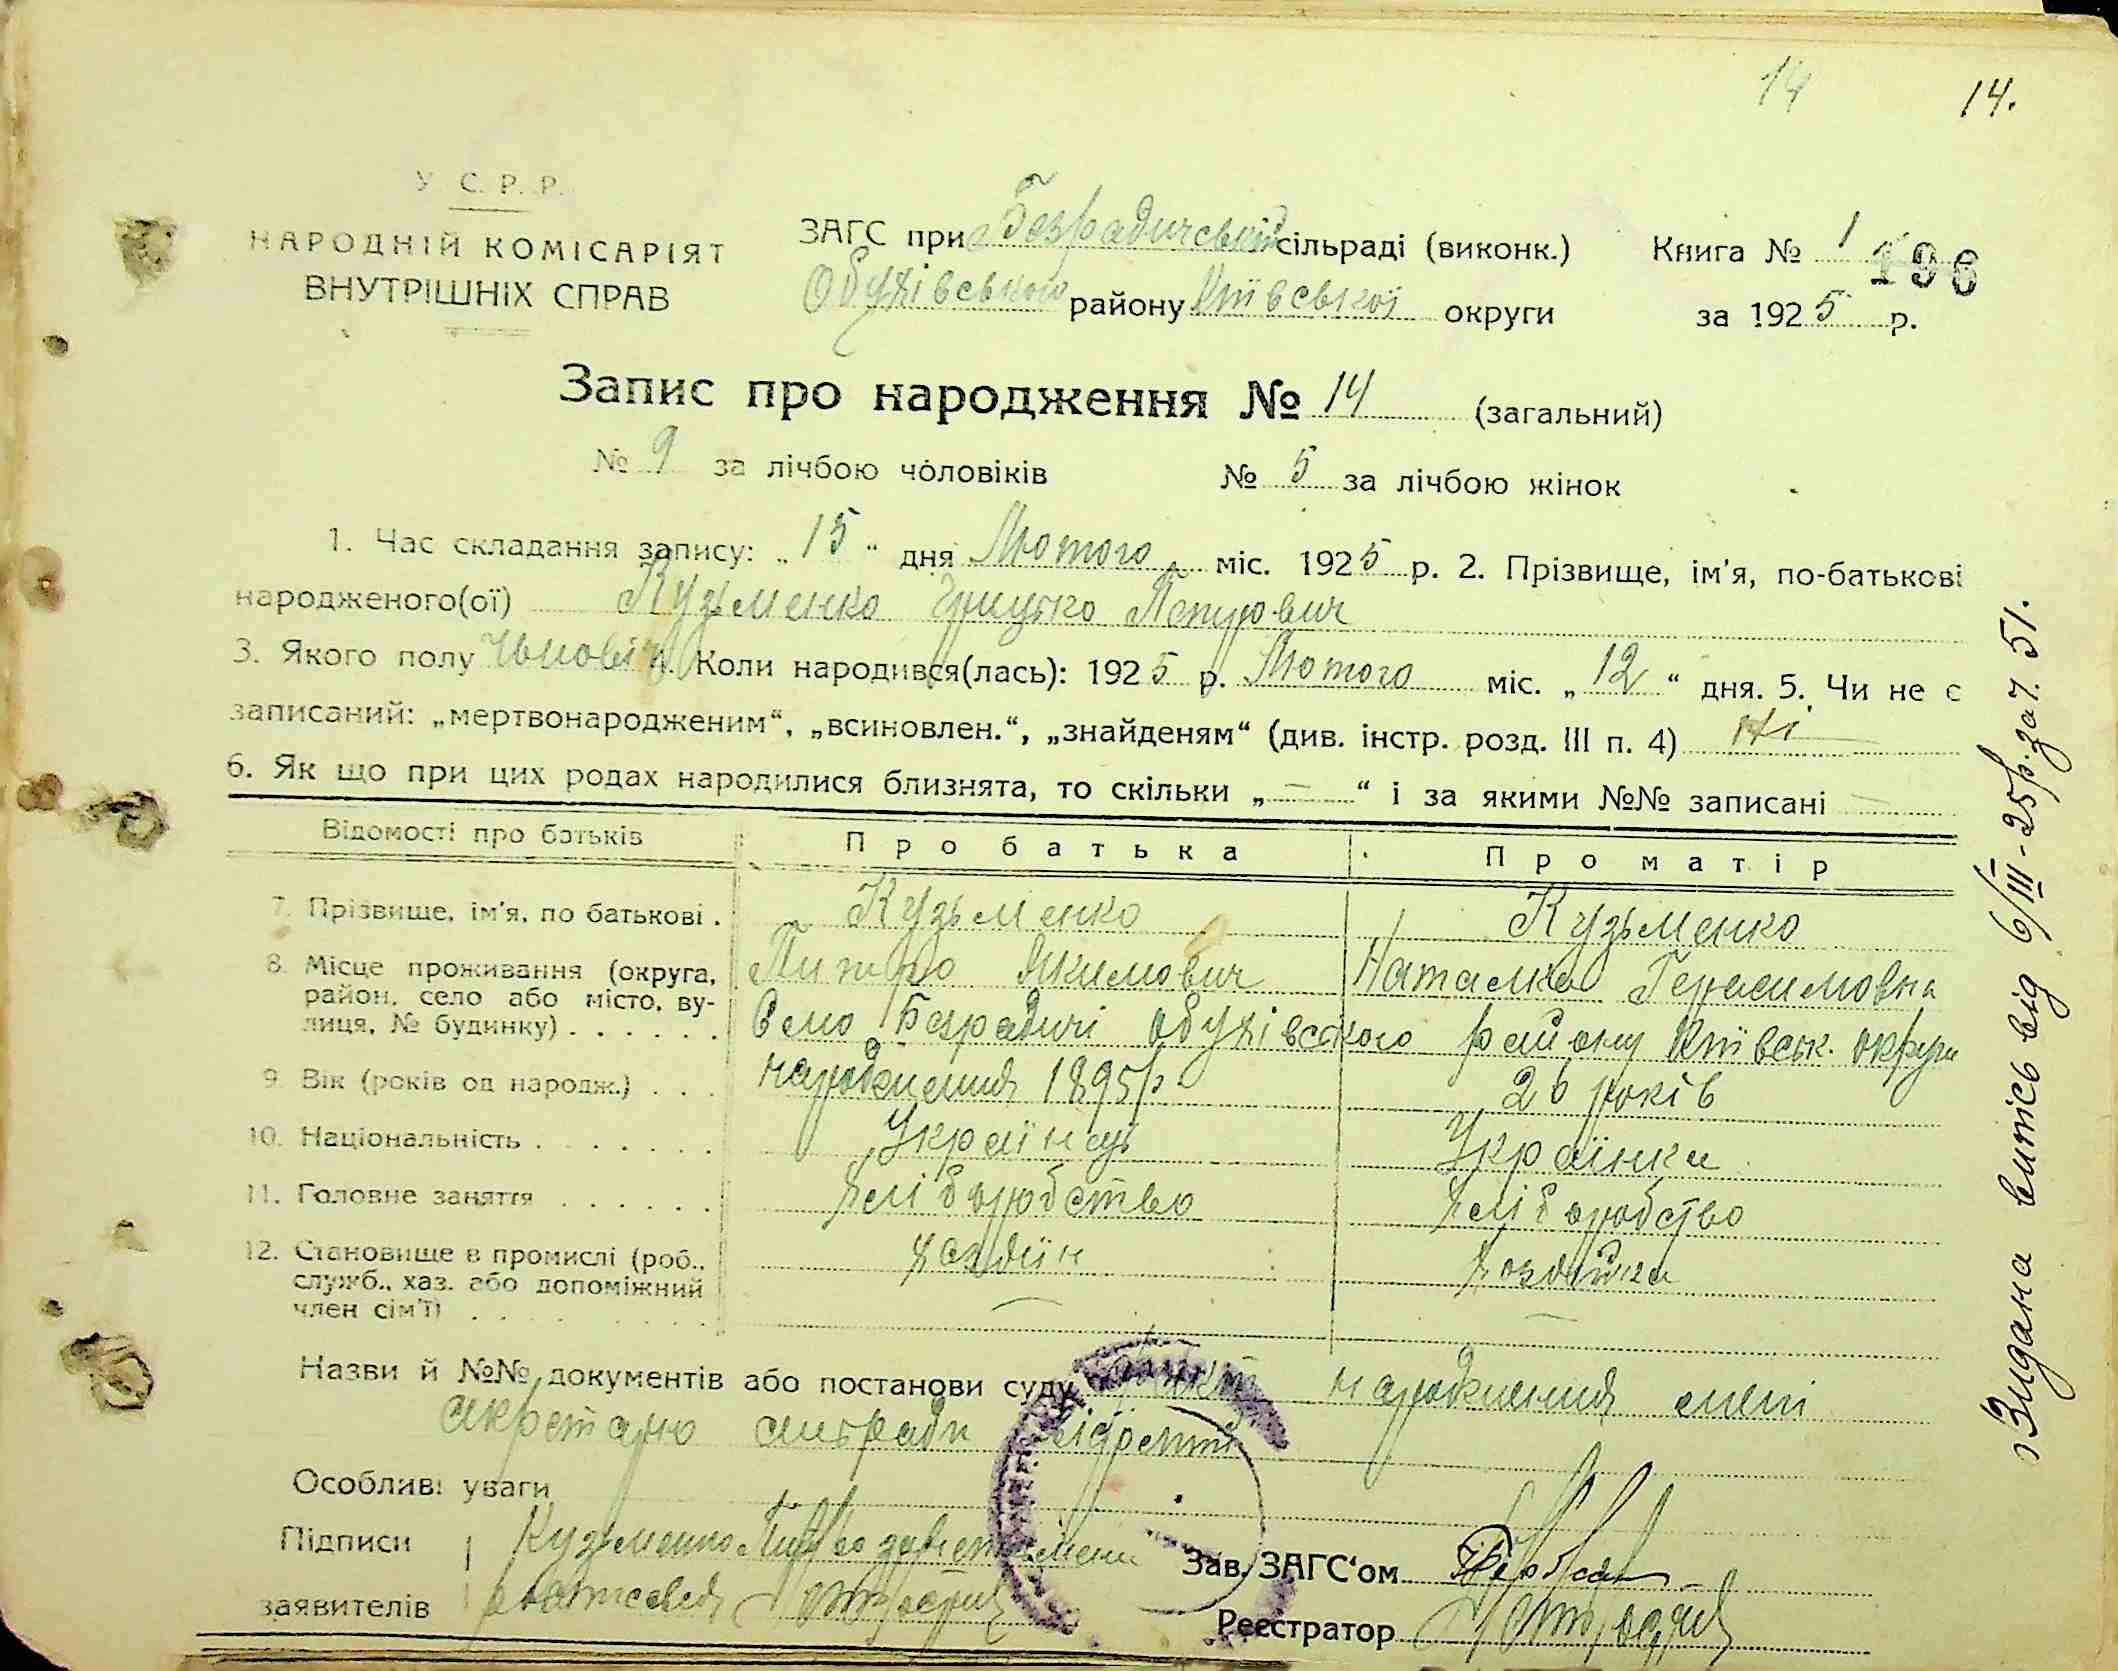 14 14.
У С. Р. Р.
НАРОДНІЙ КОМІСАРІЯТ
ВНУТРІШНІХ СПРАВ
ЗАГС при Безрадичській сільраді (виконк.)
Обухівського району Київської округи
Книга № 1 196
за 1925 р.
Запис про народження № 14 (загальний)
№ 9 за лічбою чоловіків № 5 за лічбою жінок
1. Час складання запису: „ 15 “ дня Лютого міс. 1925 р. 2. Прізвище, ім'я, по-батькові
народженого(ої) Кузьменко Грицько Петрович
3. Якого полу 4. Коли народився(лась): 1925 р. Лютого міс. „ 12 “ дня. 5. Чи не є
записаний: „мертвонародженим“, „всиновлен.“, „знайденям“ (див. інстр. розд. III п. 4) Ні
6. Як що при цих родах народилися близнята, то скільки „ — “ і за якими №№ записані —
Відомості про батьків Про батька Про матір
7. Прізвище, ім'я, по батькові . Кузьменко Кузьменко
Якимович Наталка Герасимовна
8. Місце проживання (округа, район, село або місто, ву-
лиця, № будинку) . . . . . . Село Безрадичі Обухівського району Київськ. округи
9. Вік (років од народж.) . . . народження 1895 р. 26 років
10. Національність . . . . . . . Українець Українка
11. Головне заняття . . . . . . Хліборобство Хліборобство
12. Становище в промислі (роб., хазяїн хозяйка
служб., хаз. або допоміжний
член сім'ї) . . . . . . . . . — —
Назви й №№ документів або постанови суду народження
секретарю сільради
Особливі уваги
Підписи Кузьменко
заявителів
Зав. ЗАГС'ом
Реєстратор
Видана витись від 6/III-25р. за ч. 51.